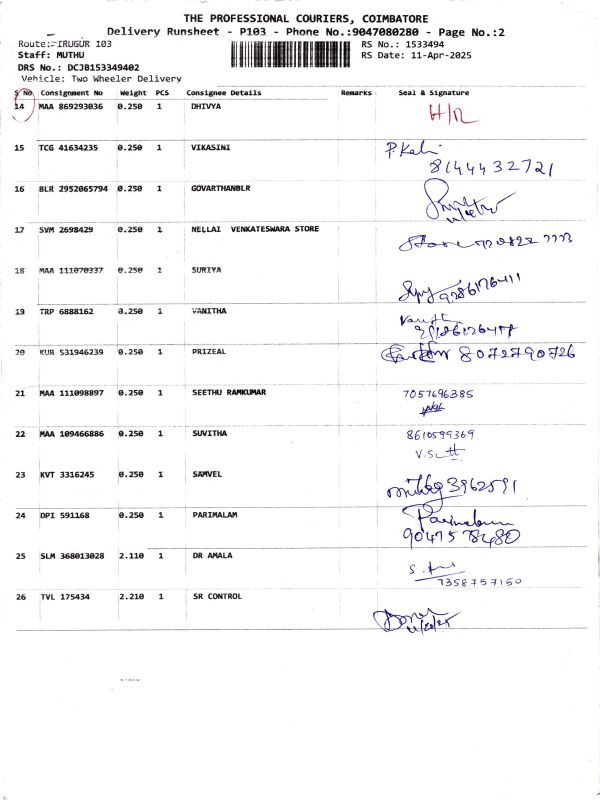 THE PROFESSIONAL COURIERS, COIMBATORE
Delivery Runsheet - P103 - Phone No.:9047080280 - Page No.:2
Route:-IRUGUR 103 RS No.: 1533494
Staff: MUTHU RS Date: 11-Apr-2025
DRS No.: DCJB153349402
Vehicle: Two Wheeler Delivery
S No Consignment No Weight PCS Consignee Details Remarks Seal & Signature
14 MAA 869293036 0.250 1 DHIVYA
15 TCG 41634235 0.250 1 VIKASINI
8144432721
16 BLR 2952065794 0.250 1 GOVARTHANBLR
17 SVM 2698429 0.250 1 NELLAI VENKATESWARA STORE
18 MAA 111070337 0.250 1 SURIYA
9286176411
19 TRP 6888162 0.250 1 VANITHA
20 KUB 531946239 0.250 1 PRIZEAL 8072790726
21 MAA 111098897 0.250 1 SEETHU RAMKUMAR 7057696385
22 MAA 109466886 0.250 1 SUVITHA 8610599369
23 KVT 3316245 0.250 1 SAMVEL
24 DPI 591168 0.250 1 PARIMALAM Parimalam
9047578480
25 SLM 368013028 2.110 1 DR AMALA
9358757150
26 TVL 175434 2.210 1 SR CONTROL